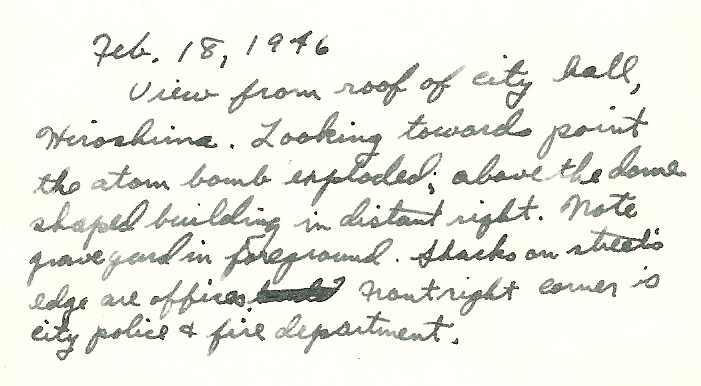 Feb. 18, 1946
View from roof of city hall,
Hiroshima. Looking towards point
the atom bomb exploded; above the dome
shaped building in distant right. Note
graveyard in foreground. Shacks on street's
edge are offices. Front right corner is
city police & fire department.